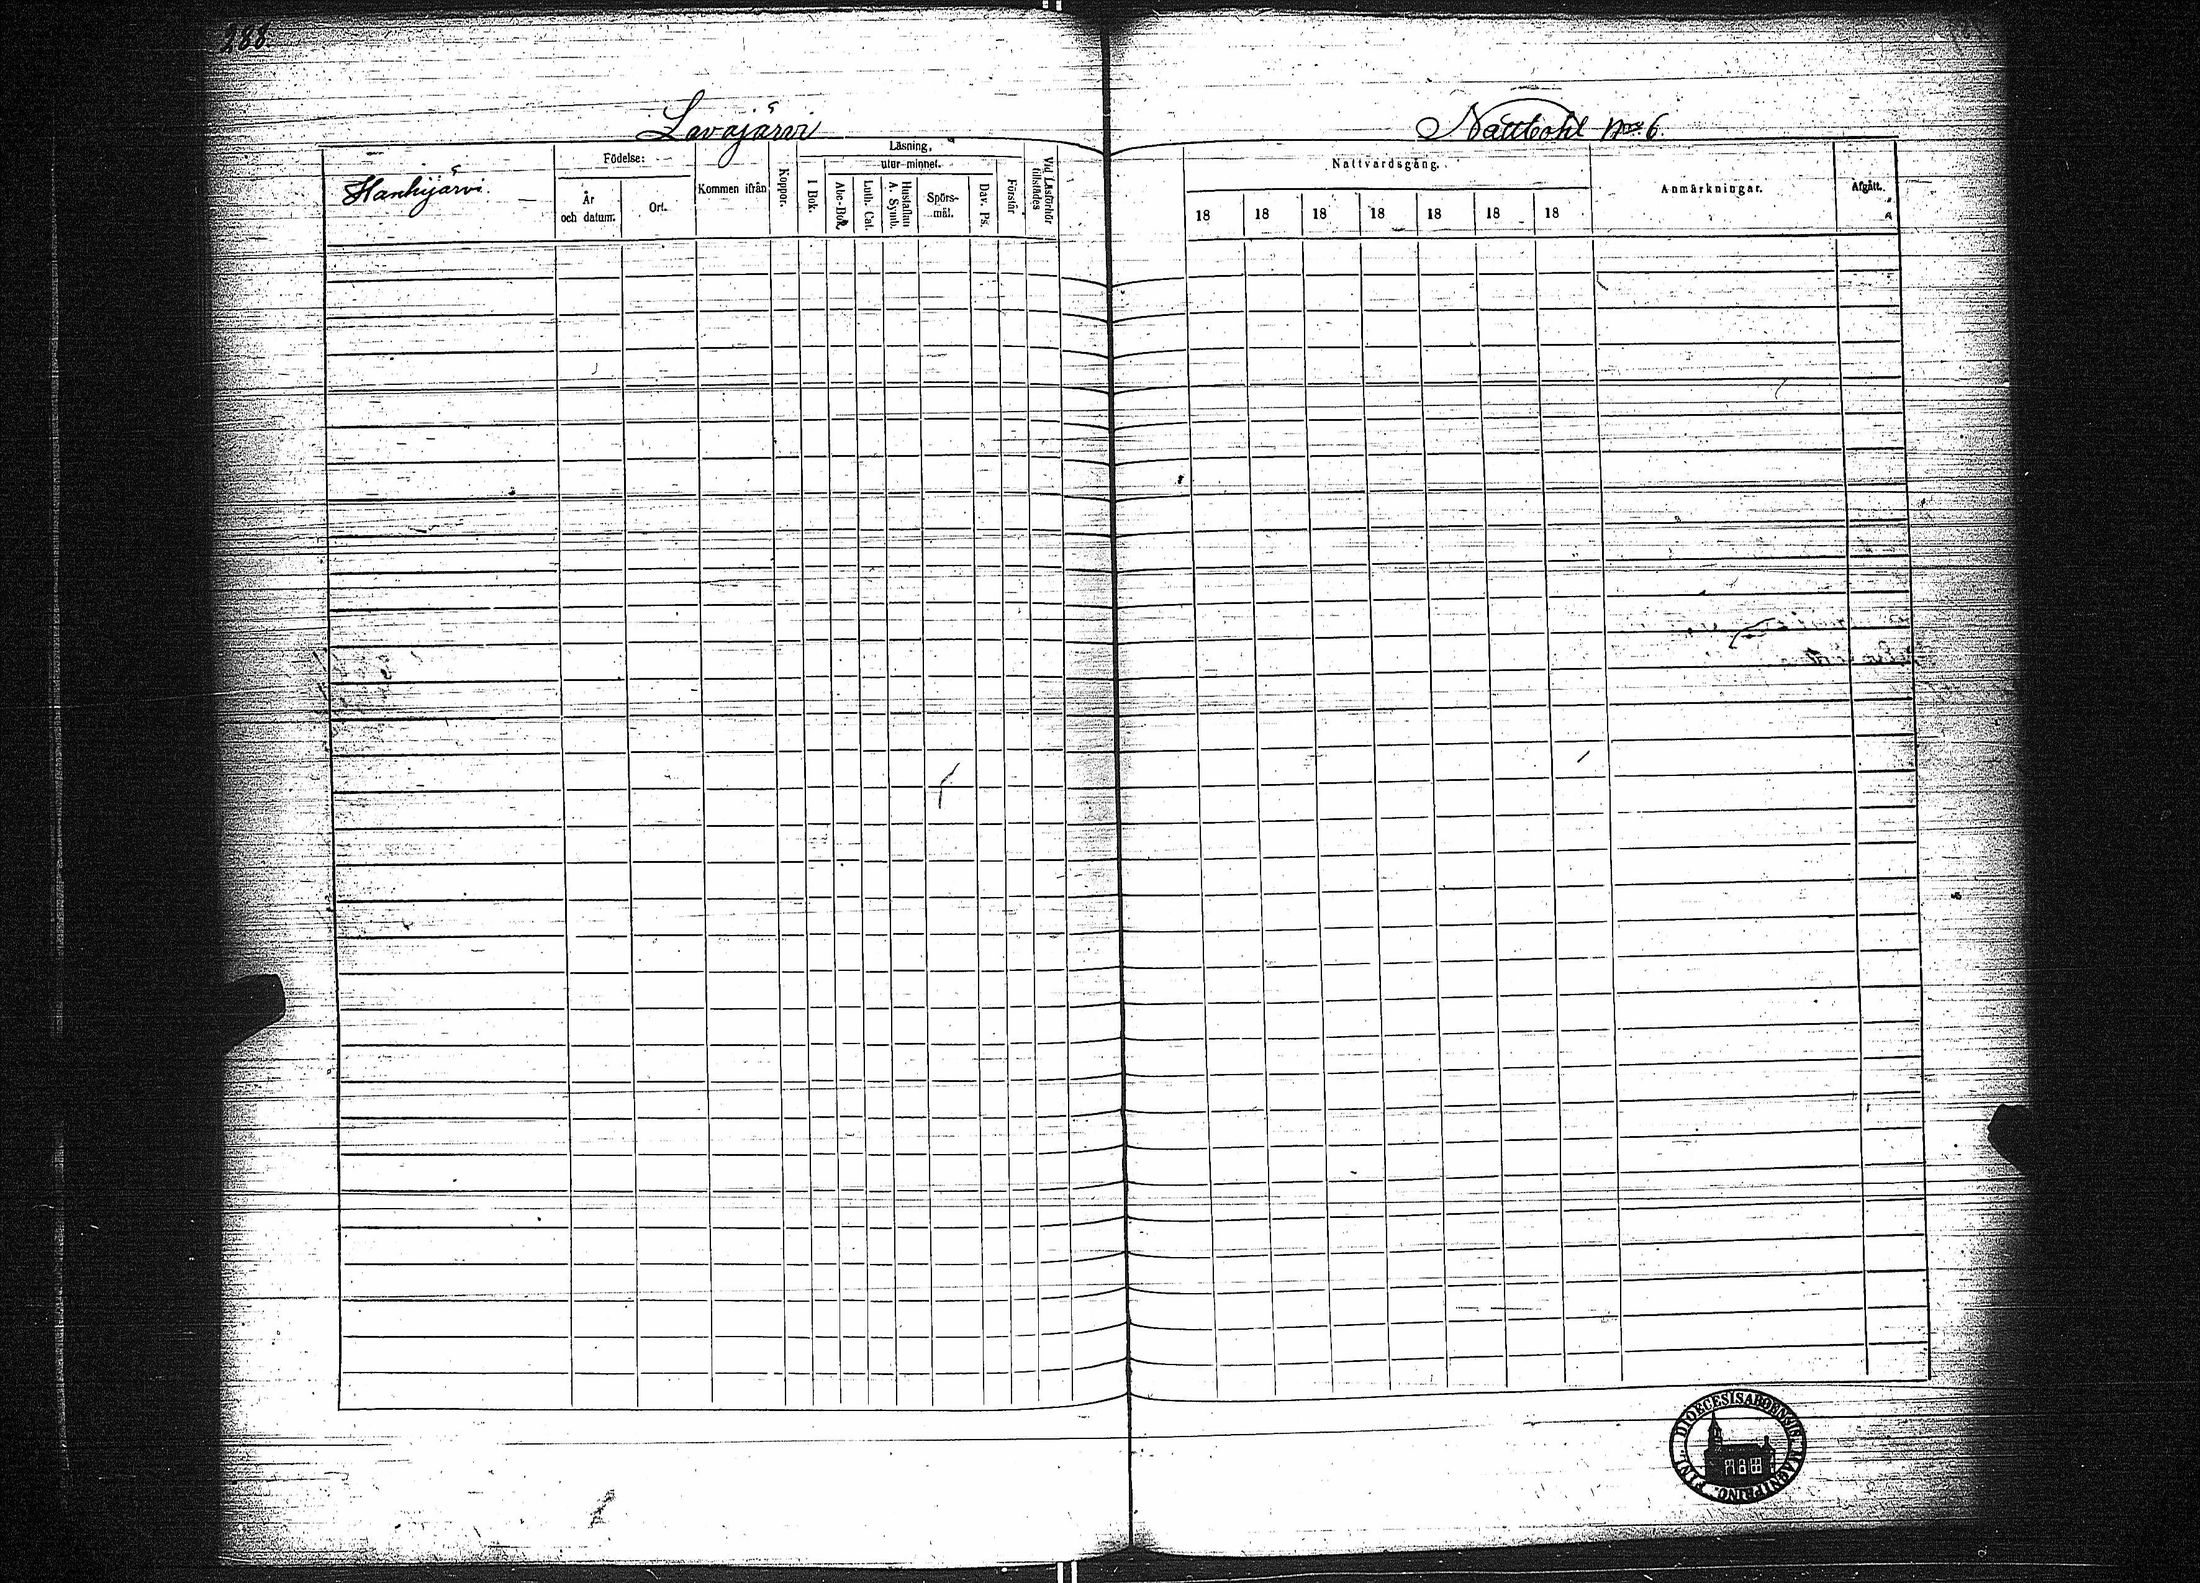 288.
Lavajärvi
Nattbohl No 6.
Hanhijärvi.
Födelse:
År
och datum.
Ort.
Kommen ifrån
Koppor.
Läsning,
utur minnet.
I Bok.
Abc-Bok.
Luth. Cat.
Hustaflan
A. Symb.
Spörs-
mål.
Dav. Ps.
Förstår
Vid Läsförhör
tillstädes
Nattvardsgång.
18 18 18 18 18 18 18
Anmärkningar.
Afgått.
DIOECESIS ABOENSIS. MAGNI PRINC. FINL.